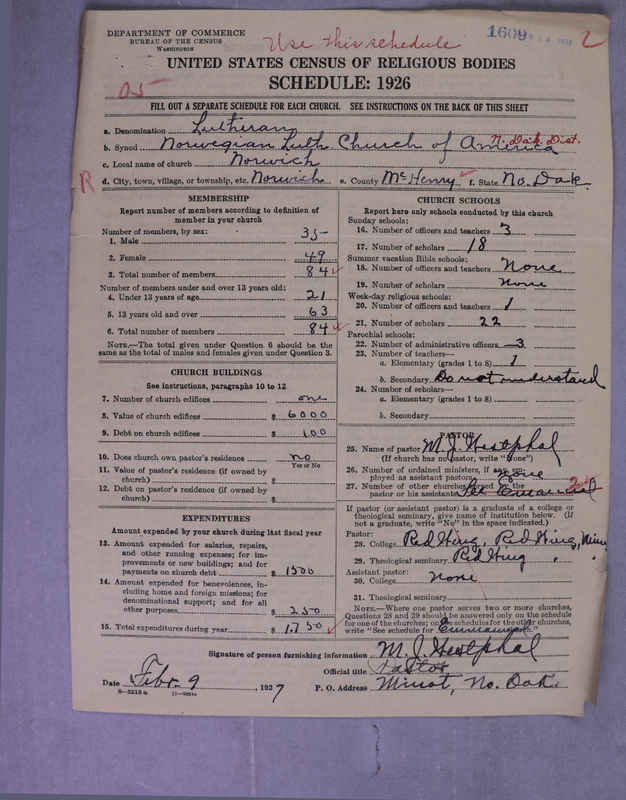 DEPARTMENT OF COMMERCE
BUREAU OF THE CENSUS
WASHINGTON
Use this schedule
1609
2
UNITED STATES CENSUS OF RELIGIOUS BODIES
SCHEDULE: 1926
05
FILL OUT A SEPARATE SCHEDULE FOR EACH CHURCH. SEE INSTRUCTIONS ON THE BACK OF THIS SHEET
a. Denomination Lutheran
b. Synod Norwegian Luth. Church of America N. Dak. Dist.
c. Local name of church Norwich
R d. City, town, village, or township, etc. Norwich e. County McHenry f. State No. Dak.
MEMBERSHIP
Report number of members according to definition of
member in your church
Number of members, by sex:
1. Male 35
2. Female 49
3. Total number of members 84
Number of members under and over 13 years old:
4. Under 13 years of age 21
5. 13 years old and over 63
6. Total number of members 84
NOTE.—The total given under Question 6 should be the
same as the total of males and females given under Question 3.
CHURCH BUILDINGS
See instructions, paragraphs 10 to 12
7. Number of church edifices one
8. Value of church edifices $ 6000
9. Debt on church edifices $ 100
10. Does church own pastor's residence? no
Yes or No
11. Value of pastor's residence (if owned by
church) $
12. Debt on pastor's residence (if owned by
church) $
EXPENDITURES
Amount expended by church during last fiscal year
13. Amount expended for salaries, repairs,
and other running expenses; for im-
provements or new buildings; and for
payments on church debt $ 1500
14. Amount expended for benevolences, in-
cluding home and foreign missions; for
denominational support; and for all
other purposes $ 250
15. Total expenditures during year $ 1,750
CHURCH SCHOOLS
Report here only schools conducted by this church
Sunday schools:
16. Number of officers and teachers 3
17. Number of scholars 18
Summer vacation Bible schools:
18. Number of officers and teachers None
19. Number of scholars none
Week-day religious schools:
20. Number of officers and teachers 1
21. Number of scholars 22
Parochial schools:
22. Number of administrative officers 3
23. Number of teachers—
a. Elementary (grades 1 to 8) 1
b. Secondary Do not understand
24. Number of scholars—
a. Elementary (grades 1 to 8)
b. Secondary
PASTOR
25. Name of pastor M. J. Westphal
(If church has no pastor, write "None")
26. Number of ordained ministers, if any, em-
ployed as assistant pastors none
27. Number of other churches served by the
pastor or his assistants
If pastor (or assistant pastor) is a graduate of a college or
theological seminary, give name of institution below. (If
not a graduate, write "No" in the space indicated.)
Pastor:
28. College Red Wing, Red Wing, Minn
29. Theological seminary Red Wing
Assistant pastor:
30. College none
31. Theological seminary
NOTE.—Where one pastor serves two or more churches,
Questions 28 and 29 should be answered only on the schedule
for one of the churches; on the schedules for the other churches,
write "See schedule for
Signature of person furnishing information M. J. Westphal
Official title Pastor
Date Febr. 9, 1927 P. O. Address Minot, No. Dak.
8-5518a